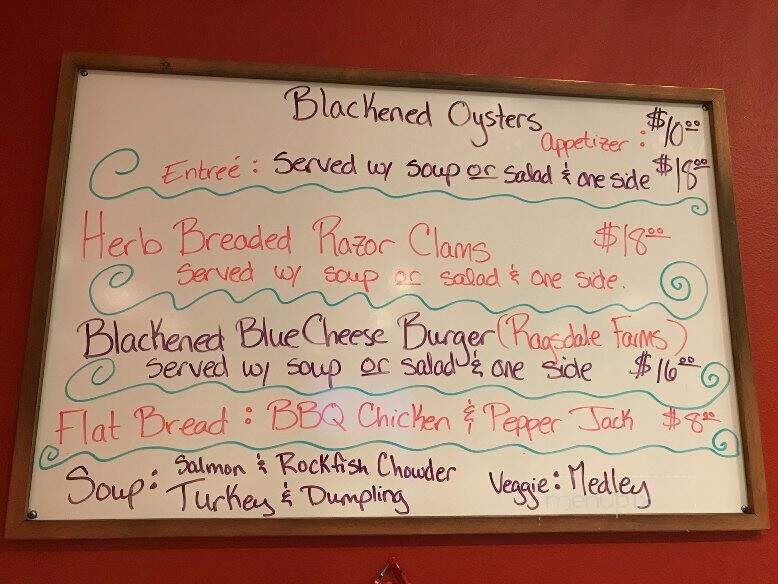 Blackened Oysters
Appetizer: $10.00
Entreé: Served w/ soup or salad & one side $18.00
Herb Breaded Razor Clams $18.00
Served w/ soup or salad & one side.
Blackened Blue Cheese Burger (Ragsdale Farms)
Served w/ soup or salad & one side $16.00
Flat Bread: BBQ Chicken & Pepper Jack $8.00
Soup: Salmon & Rockfish Chowder
Turkey & Dumpling
Veggie: Medley